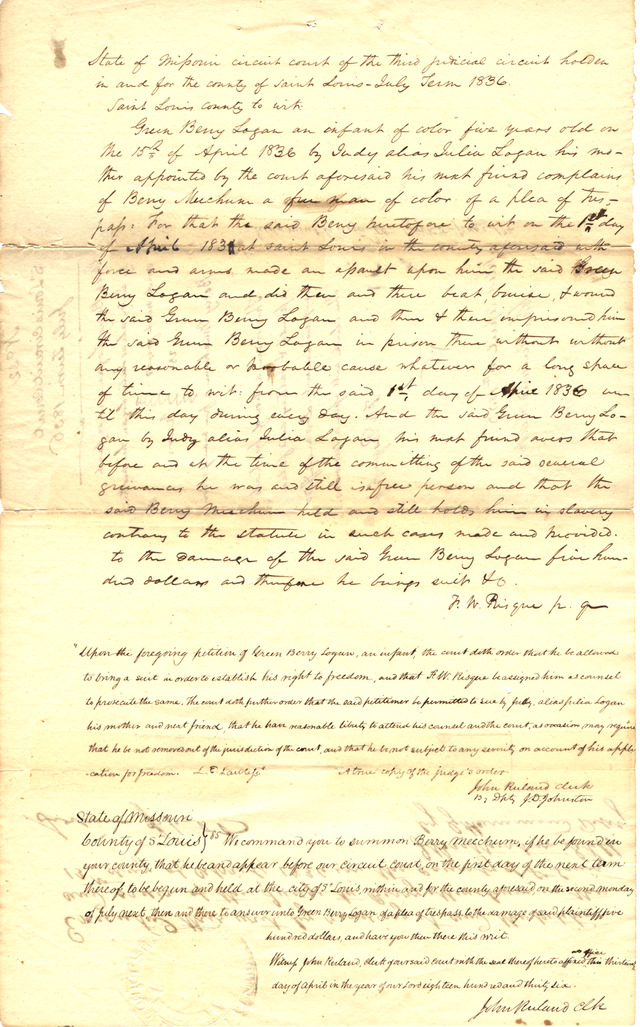 State of Missouri circuit court of the third judicial circuit holden
in and for the county of Saint Louis - July Term 1836.
Saint Louis county to wit.
Green Berry Logan an infant of color five years old on
the 15th of April 1836 by Judy alias Julia Logan his mo-
ther appointed by the court aforesaid his next friend complains
of Berry Meechum a free man of color of a plea of tres-
pass: For that the said Berry heretofore to wit on the 1st day
of April 183 at saint Louis in the county aforesaid with
force and arms made an assault upon him the said Green
Berry Logan and did then and there beat, bruise, & wound
the said Green Berry Logan and then & there imprisoned him
the said Green Berry Logan in prison there without without
any reasonable or probable cause whatever for a long space
of time to wit: from the said 1st day of April 1836 un-
til this day during every day. And the said Green Berry Lo-
gan by Judy alias Julia Logan his next friend avers that
before and at the time of the committing of the said several
grievances he was and still is a free person and that the
said Berry Meechum held and still holds him in slavery
contrary to the statute in such cases made and provided.
to the damage of the said Green Berry Logan five hun-
dred dollars and therefore he brings suit &c.
F. W. Risque p. q
"Upon the foregoing petition of Green Berry Logan, an infant, the court doth order that he be allowed
to bring a suit in order to establish his right to freedom, and that F. W. Risque be assigned him as counsel
to prosecute the same. The court doth further order that the said petitioner be permitted to sue by Judy, alias Julia Logan
his mother and next friend, that he have reasonable liberty to attend his counsel and the court, as occasion may require
that he be not removed out of the jurisdiction of the court, and that he be not subject to any severity on account of his appli-
cation for freedom. L. E. Lawless" A true copy of the judge's order
John Ruland clerk
By Dpty J. D. Johnston
State of Missouri
County of St Louis } ss We command you to summon Berry Meechum, if he be found in
your county, that he be and appear before our circuit court, on the first day of the next term
thereof, to be begun and held at the city of St Louis, within and for the county aforesaid on the second monday
of July next, then and there to answer unto Green Berry Logan of a plea of trespass, to the damage of said plaintiff five
hundred dollars, and have you then there this writ.
Witness John Ruland, clerk of our said court with the seal thereof hereto affixed at office this thirteenth
day of April in the year of our Lord eighteen hundred and thirty six.
John Ruland Clk